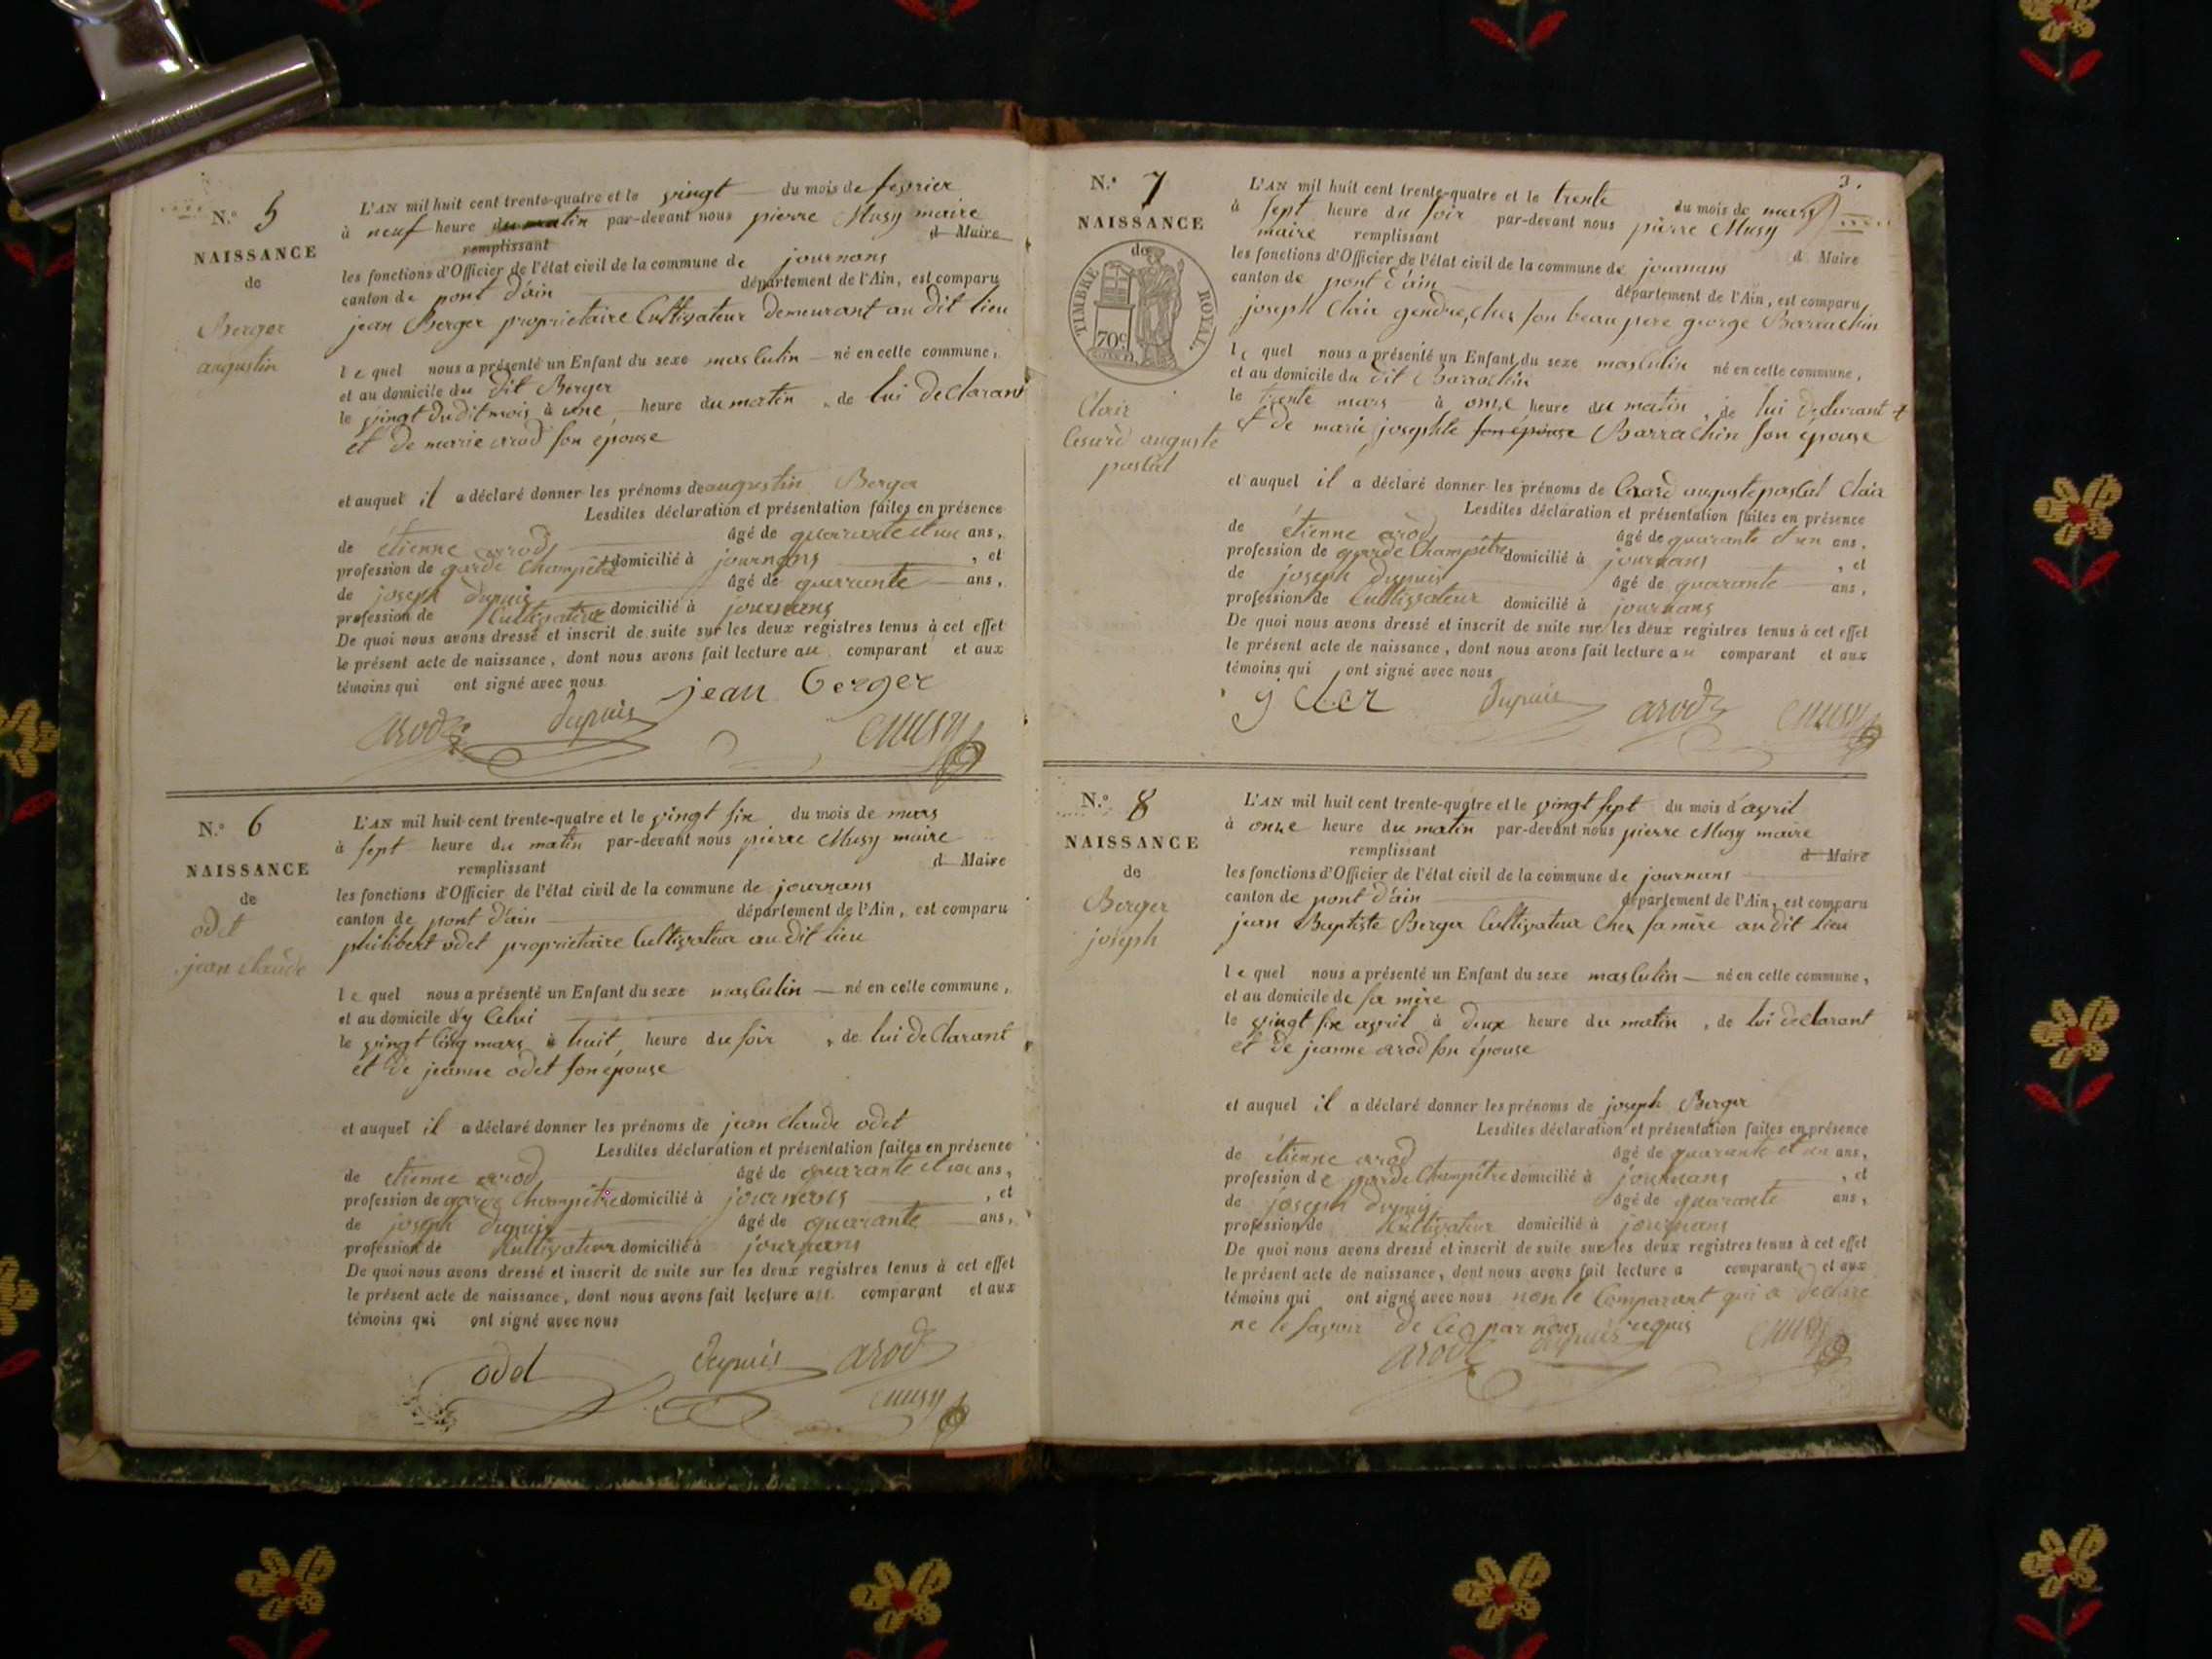 N.° 5
NAISSANCE
de
Berger
augustin
L'AN mil huit cent trente-quatre et le vingt du mois de fevrier
à neuf heure du matin par-devant nous pierre Musy maire
remplissant d Maire
les fonctions d'Officier de l'état civil de la commune de journans
canton de pont d'ain département de l'Ain, est comparu
jean Berger proprietaire Cultivateur demeurant au dit lieu
lequel nous a présenté un Enfant du sexe masculin né en cette commune,
et au domicile du dit Berger
le vingt du dit mois à une heure du matin, de lui declarant
et de marie arod son épouse
et auquel il a déclaré donner les prénoms de augustin Berger
Lesdites déclaration et présentation faites en présence
de étienne arod âgé de quarante et un ans,
profession de garde champetre domicilié à journans, et
de joseph dupuis âgé de quarante ans,
profession de Cultivateur domicilié à journans
De quoi nous avons dressé et inscrit de suite sur les deux registres tenus à cet effet
le présent acte de naissance, dont nous avons fait lecture au comparant et aux
témoins qui ont signé avec nous
jean Berger
arod dupuis Musy
N.° 6
NAISSANCE
de
odet
jean claude
L'AN mil huit cent trente-quatre et le vingt six du mois de mars
à sept heure du matin par-devant nous pierre Musy maire
remplissant d Maire
les fonctions d'Officier de l'état civil de la commune de journans
canton de pont d'ain département de l'Ain, est comparu
philibert odet proprietaire Cultivateur au dit lieu
lequel nous a présenté un Enfant du sexe masculin né en cette commune,
et au domicile dy Celui
le vingt cinq mars à huit heure du soir, de lui declarant
et de jeanne odet son épouse
et auquel il a déclaré donner les prénoms de jean claude odet
Lesdites déclaration et présentation faites en présence
de étienne arod âgé de quarante et un ans,
profession de garde champêtre domicilié à journans, et
de joseph dupuis âgé de quarante ans,
profession de Cultivateur domicilié à journans
De quoi nous avons dressé et inscrit de suite sur les deux registres tenus à cet effet
le présent acte de naissance, dont nous avons fait lecture au comparant et aux
témoins qui ont signé avec nous
odet dupuis arod
Musy
3.
N.° 7
NAISSANCE
de
TIMBRE ROYAL.
70c
Clair
Cesard auguste
pascal
L'AN mil huit cent trente-quatre et le trente du mois de mars
à sept heure du soir par-devant nous pierre Musy
maire remplissant d Maire
les fonctions d'Officier de l'état civil de la commune de journans
canton de pont d'ain département de l'Ain, est comparu
joseph Clair gendre, chez son beau pere george Barrachin
lequel nous a présenté un Enfant du sexe masculin né en cette commune,
et au domicile du dit Barrachin
le trente mars à onze heure du matin, de lui declarant
et de marie josephte son épouse Barrachin son épouse
et auquel il a déclaré donner les prénoms de Cesard auguste pascal Clair
Lesdites déclaration et présentation faites en présence
de étienne arod âgé de quarante et un ans,
profession de garde champêtre domicilié à journans, et
de joseph dupuis âgé de quarante ans,
profession de Cultivateur domicilié à journans
De quoi nous avons dressé et inscrit de suite sur les deux registres tenus à cet effet
le présent acte de naissance, dont nous avons fait lecture au comparant et aux
témoins qui ont signé avec nous
dupuis arod Musy
N.° 8
NAISSANCE
de
Berger
joseph
L'AN mil huit cent trente-quatre et le vingt sept du mois d'avril
à onze heure du matin par-devant nous pierre Musy maire
remplissant d Maire
les fonctions d'Officier de l'état civil de la commune de journans
canton de pont d'ain département de l'Ain, est comparu
jean Baptiste Berger Cultivateur Chez sa mère au dit lieu
lequel nous a présenté un Enfant du sexe masculin né en cette commune,
et au domicile de sa mère
le vingt six avril à deux heure du matin, de lui declarant
et de jeanne arod son épouse
et auquel il a déclaré donner les prénoms de joseph Berger
Lesdites déclaration et présentation faites en présence
de étienne arod âgé de quarante et un ans,
profession de garde Champêtre domicilié à journans, et
de joseph dupuis âgé de quarante ans,
profession de Cultivateur domicilié à journans
De quoi nous avons dressé et inscrit de suite sur les deux registres tenus à cet effet
le présent acte de naissance, dont nous avons fait lecture a comparant et aux
témoins qui ont signé avec nous non le Comparant qui a declare
ne le savoir de ce par nous requis
arod dupuis Musy